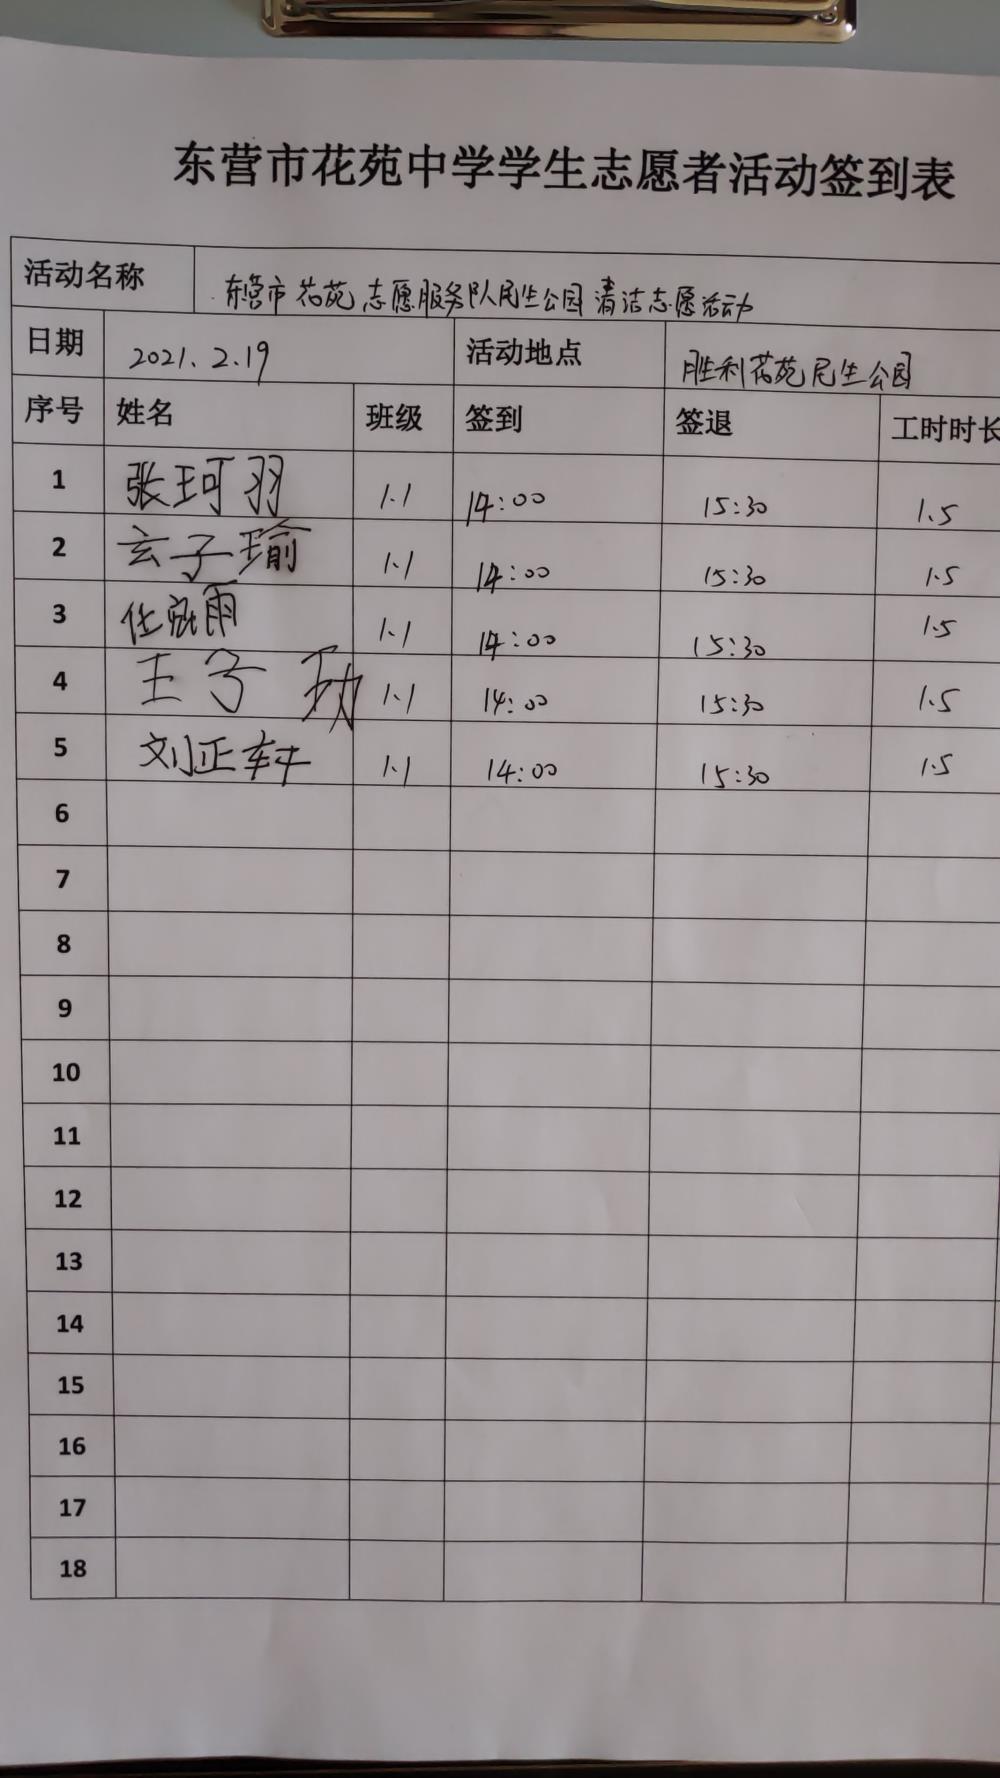 东营市花苑中学学生志愿者活动签到表
活动名称 东营市花苑志愿服务队民生公园清洁志愿活动
日期 2021.2.19 活动地点 胜利花苑民生公园
序号 姓名 班级 签到 签退 工时时长
1 张珂羽 1.1 14:00 15:30 1.5
2 玄子瑜 1.1 14:00 15:30 1.5
3 1.1 14:00 15:30 1.5
4 王子 1.1 14:00 15:30 1.5
5 刘正轩 1.1 14:00 15:30 1.5
6
7
8
9
10
11
12
13
14
15
16
17
18